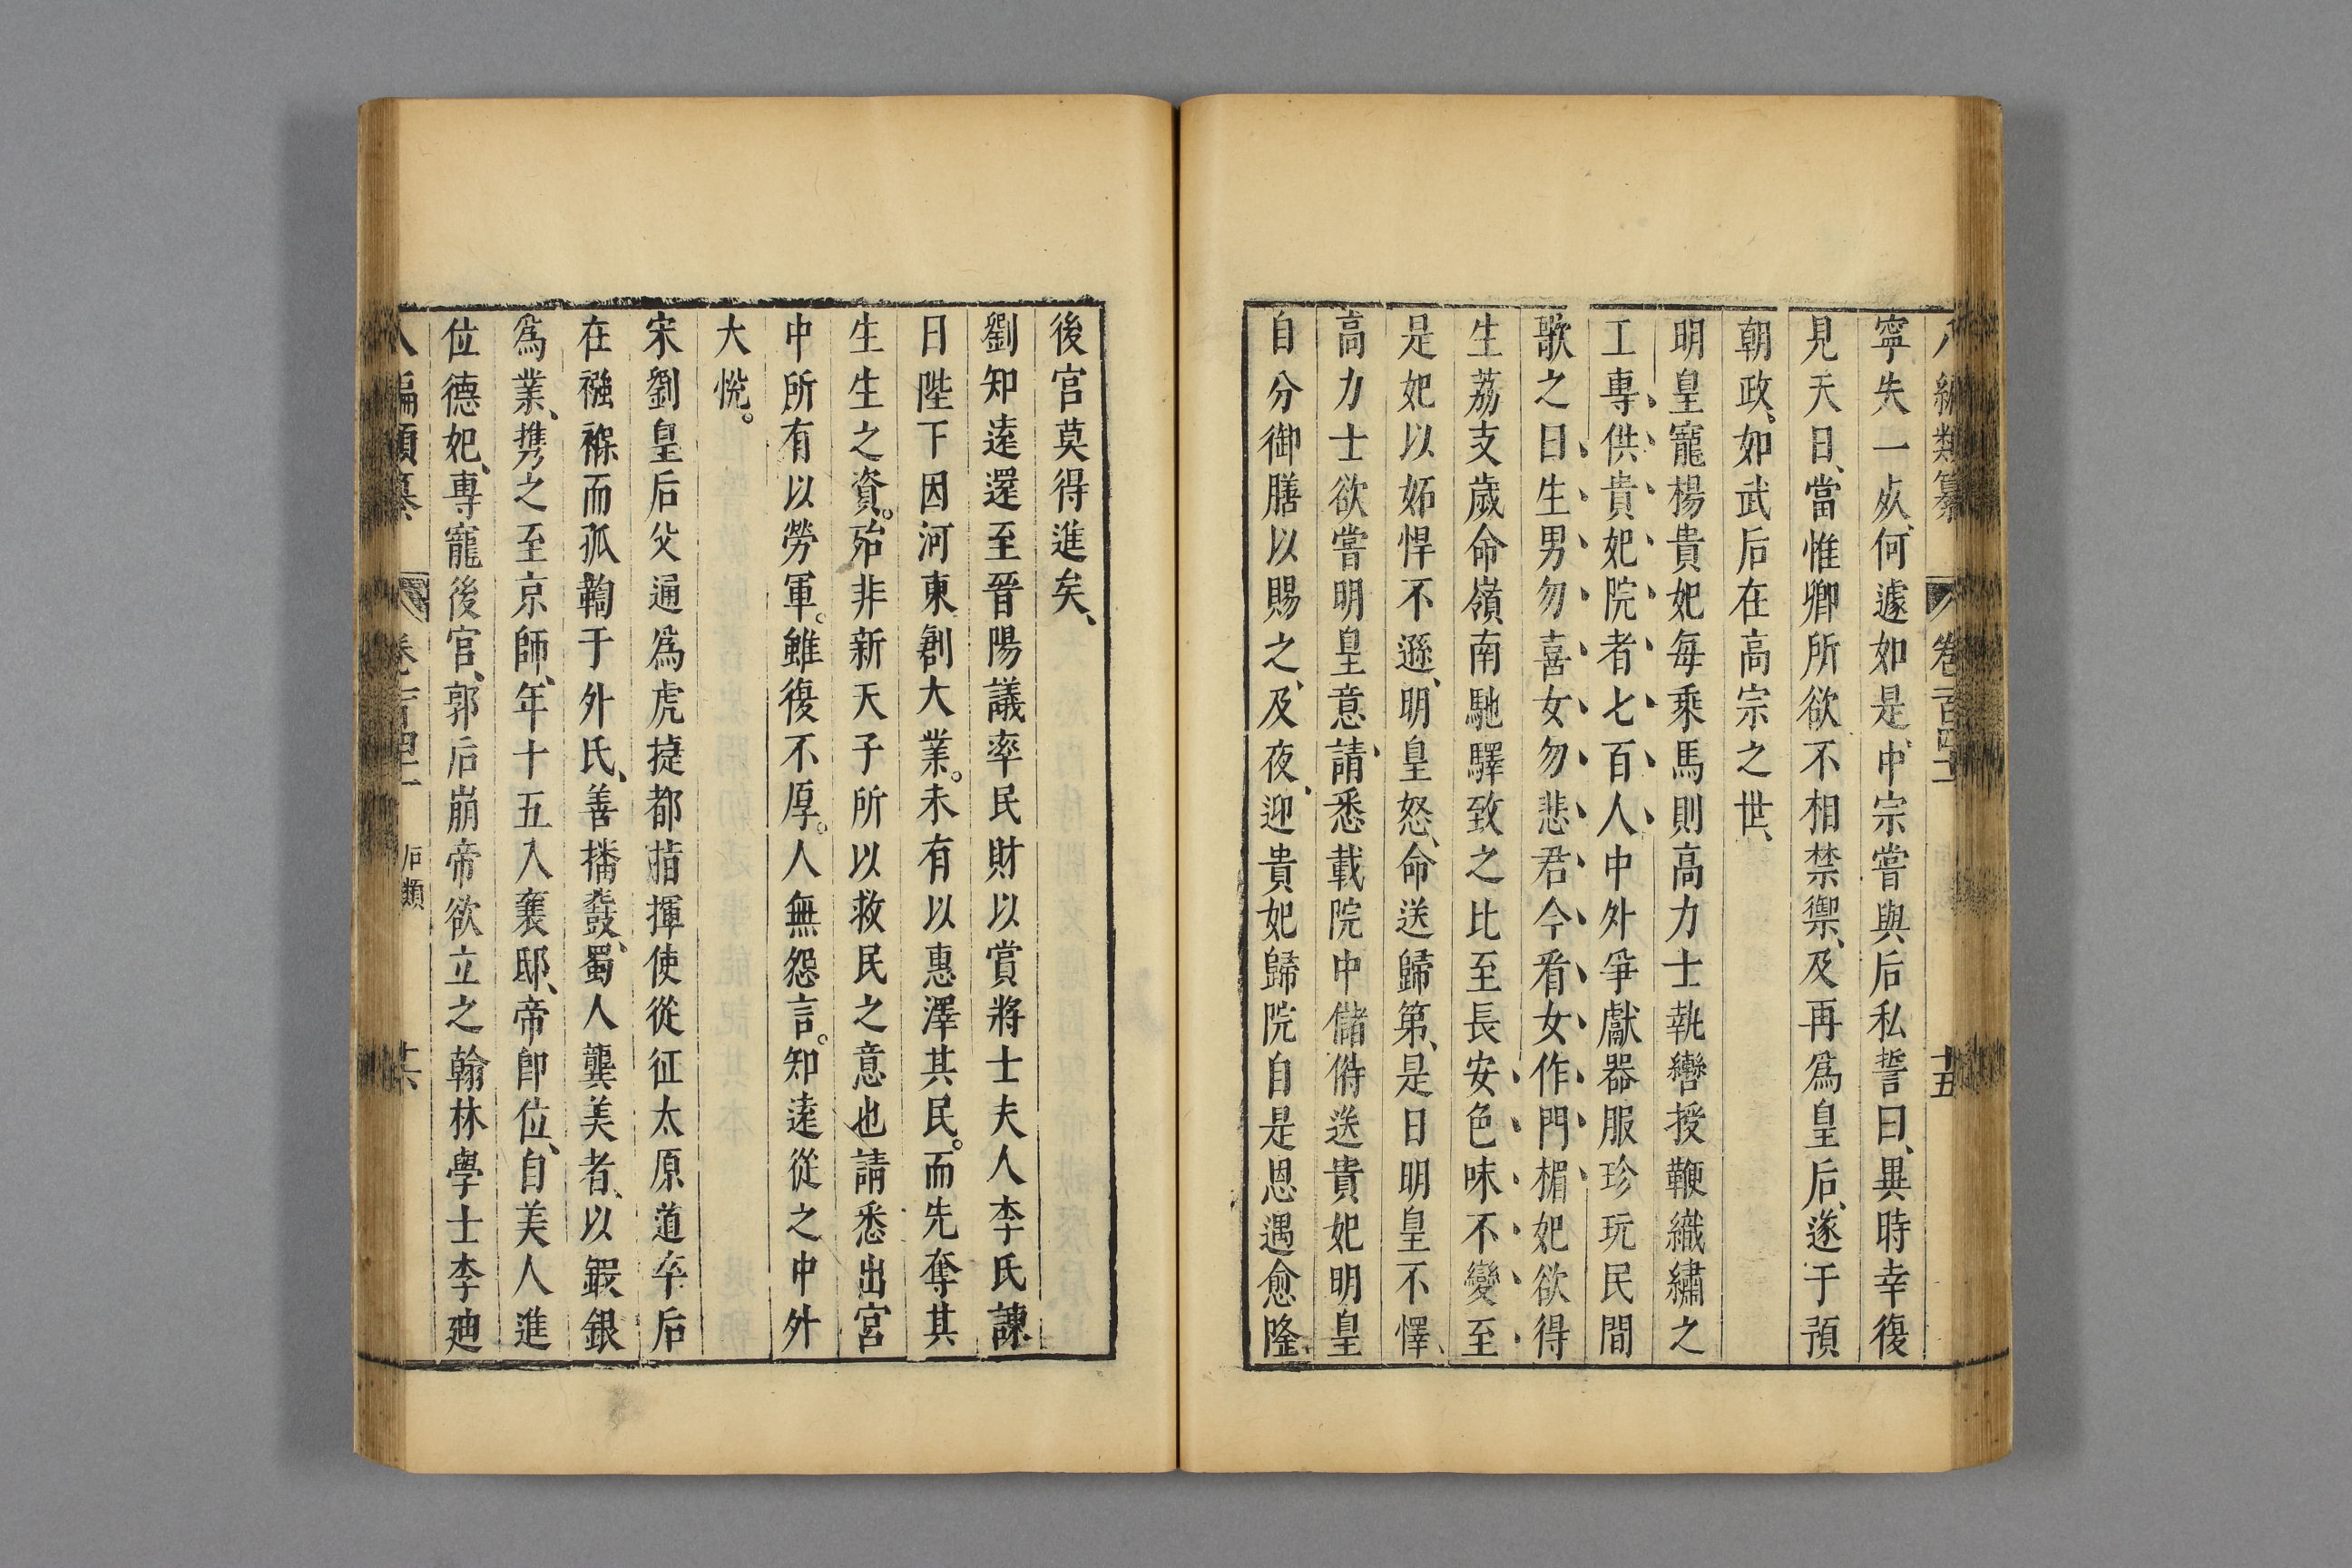 編類纂 卷一百四十二 十五
寧失一死、何遽如是、中宗嘗與后私誓曰、異時幸復
見天日、當惟卿所欲不相禁禦、及再爲皇后、遂于預
朝政、如武后在高宗之世、
明皇寵楊貴妃每乘馬則高力士執轡授鞭織繡之
工專供貴妃院者七百人中外爭獻器服珍玩民間
歌之曰生男勿喜女勿悲君今看女作門楣妃欲得
生荔支歲命嶺南馳驛致之比至長安色味不變至
是妃以妬悍不遜、明皇怒、命送歸第、是日明皇不懌、
高力士欲嘗明皇意、請悉載院中儲偫送貴妃明皇
自分御膳以賜之、及夜、迎貴妃歸院自是恩遇愈隆、
後宮莫得進矣、
劉知遠還至晉陽議率民財以賞將士夫人李氏諫
曰陛下因河東創大業。未有以惠澤其民。而先奪其
生生之資。殆非新天子所以救民之意也請悉出宮
中所有以勞軍。雖復不厚。人無怨言。知遠從之中外
大悅。
宋劉皇后父通爲虎捷都指揮使從征太原道卒后
在襁褓而孤鞠于外氏、善播鼗、蜀人龔美者、以鍛銀
爲業、攜之至京師、年十五入襄邸、帝卽位、自美人進
位德妃、專寵後宮、郭后崩帝欲立之翰林學士李迪
八編類纂 卷之一百四十二 后類 十六